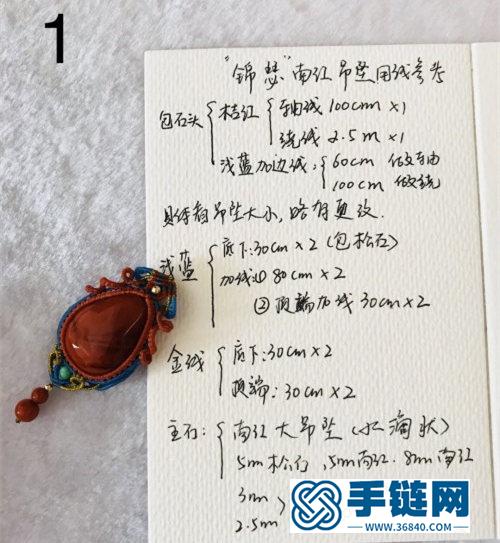 1
"锦瑟"南红吊坠用线参考
包石头 桔红 轴线 100cm ×1
绕线 2.5m ×1
浅蓝加边线: 60cm 做轴
100cm 做绕
具体看吊坠大小,略有更改.
浅蓝 底下:30cm×2(包松石)
加线(1) 80cm×2
(2) 顶端加线 30cm×2
金线 底下:30cm×2
顶端:30cm×2
主石: 南红大吊坠(水滴状)
5m松石,5m南红.8m南红
3m
2.5m
手链网
WWW.36840.COM